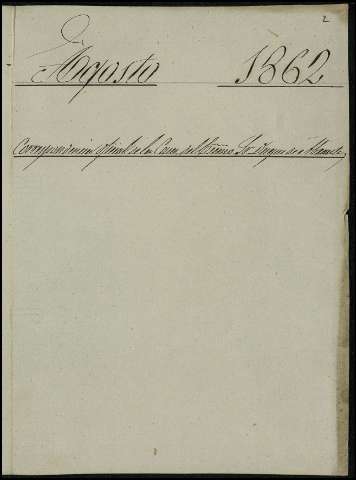 2
Agosto 1862
Correspondencia oficial de la Casa del Excmo. Sr. Duque de